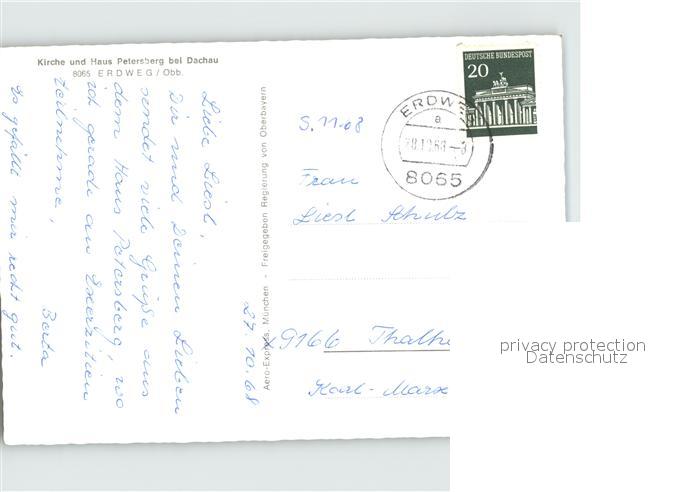 Kirche und Haus Petersberg bei Dachau
8065 ERDWEG / Obb.
27. 10. 68
Liebe Liesl,
Dir und Deinen Lieben
sendet viele Grüße aus
dem Haus Petersberg, wo
ich gerade an Exerzitien
teilnehme,
Berta
Es gefällt mir recht gut.
Aero-Express, München - Freigegeben Regierung von Oberbayern
DEUTSCHE BUNDESPOST
20
ERDWE
a
8065
S. 11.08
Frau
Liesl Schulz
x9166 Thalhe
Karl-Marx
privacy protection
Datenschutz